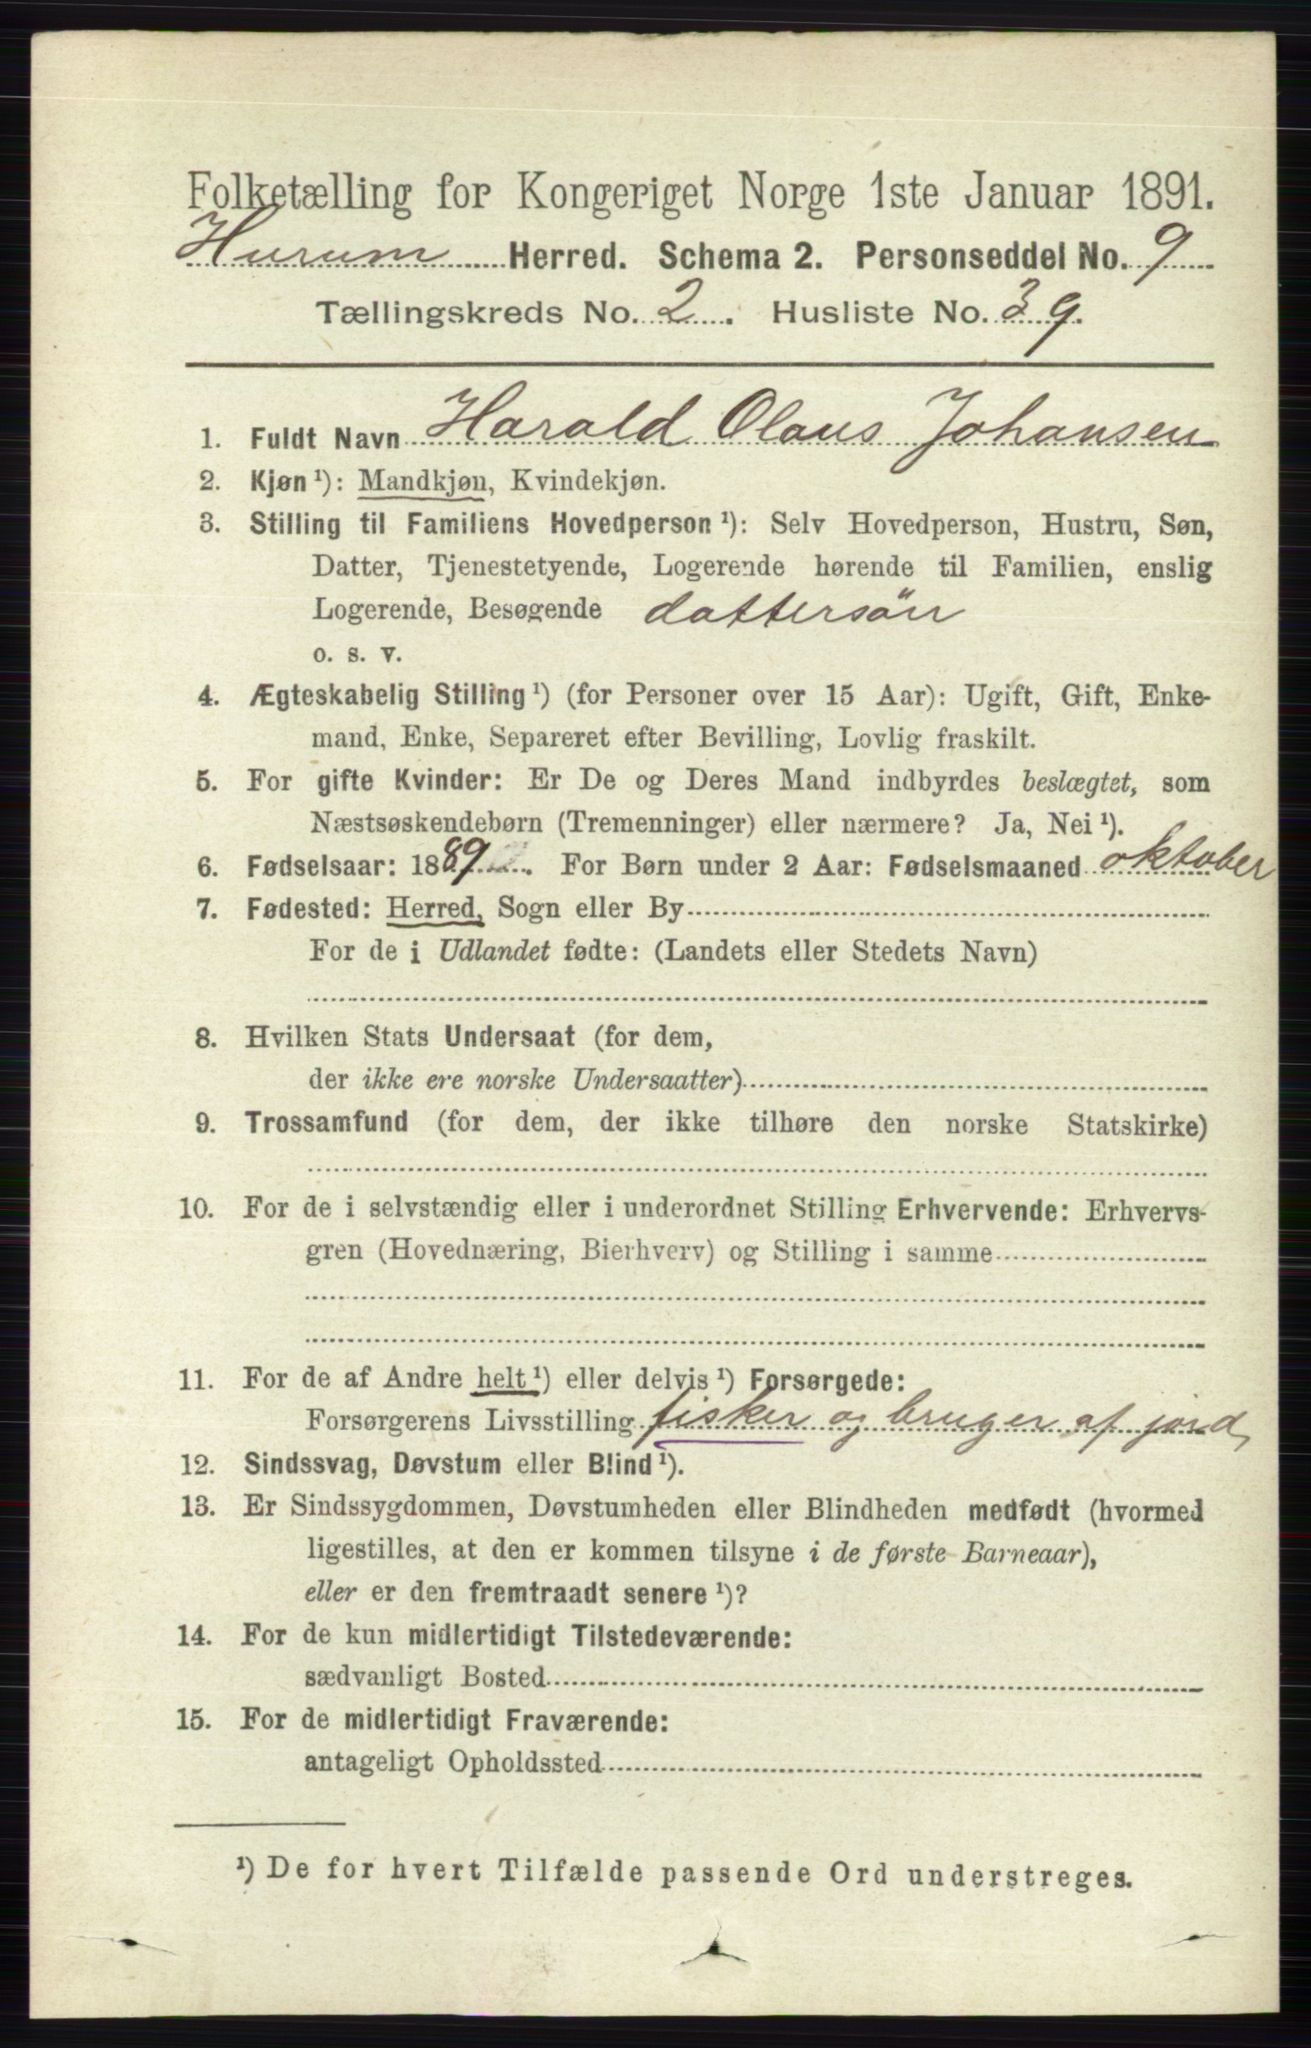 Folketælling for Kongeriget Norge 1ste Januar 1891.
Hurum Herred. Schema 2. Personseddel No. 9
Tællingskreds No. 2. Husliste No. 39.
1. Fuldt Navn Harald Olaus Johansen
2. Kjøn¹): Mandkjøn, Kvindekjøn.
3. Stilling til Familiens Hovedperson¹): Selv Hovedperson, Hustru, Søn,
Datter, Tjenestetyende, Logerende hørende til Familien, enslig
Logerende, Besøgende dattersön
o. s. v.
4. Ægteskabelig Stilling¹) (for Personer over 15 Aar): Ugift, Gift, Enke-
mand, Enke, Separeret efter Bevilling, Lovlig fraskilt.
5. For gifte Kvinder: Er De og Deres Mand indbyrdes beslægtet, som
Næstsøskendebørn (Tremenninger) eller nærmere? Ja, Nei¹).
6. Fødselsaar: 1889. For Børn under 2 Aar: Fødselsmaaned oktober
7. Fødested: Herred, Sogn eller By
For de i Udlandet fødte: (Landets eller Stedets Navn)
8. Hvilken Stats Undersaat (for dem,
der ikke ere norske Undersaatter)
9. Trossamfund (for dem, der ikke tilhøre den norske Statskirke)
10. For de i selvstændig eller i underordnet Stilling Erhvervende: Erhvervs-
gren (Hovednæring, Bierhverv) og Stilling i samme
11. For de af Andre helt¹) eller delvis¹) Forsørgede:
Forsørgerens Livsstilling fisker og bruger af jord
12. Sindssvag, Døvstum eller Blind¹).
13. Er Sindssygdommen, Døvstumheden eller Blindheden medfødt (hvormed
ligestilles, at den er kommen tilsyne i de første Barneaar),
eller er den fremtraadt senere¹)?
14. For de kun midlertidigt Tilstedeværende:
sædvanligt Bosted
15. For de midlertidigt Fraværende:
antageligt Opholdssted
¹) De for hvert Tilfælde passende Ord understreges.